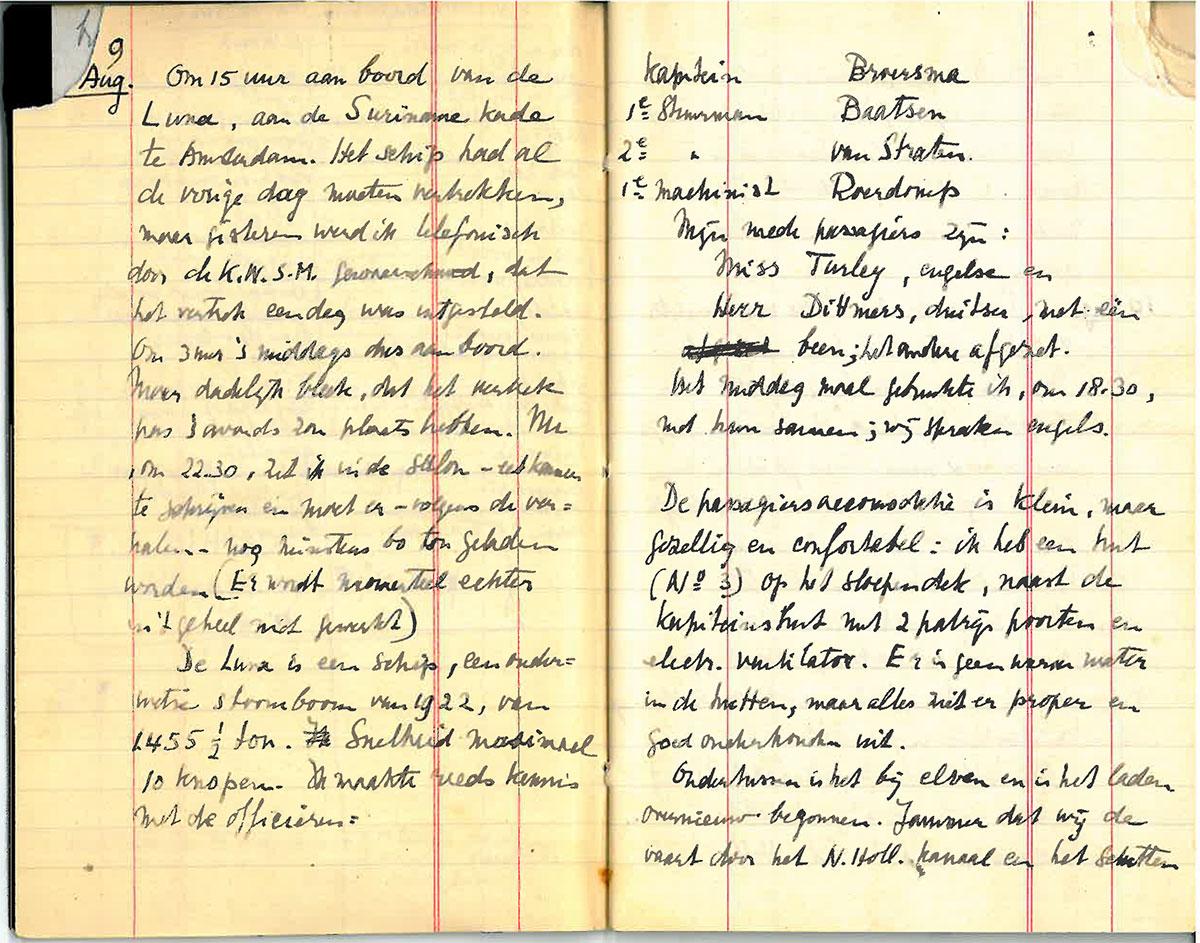 9
Aug. Om 15 uur aan boord van de
Luna, aan de Suriname kade
te Amsterdam. Het schip had al
de vorige dag moeten vertrekken,
maar gisteren werd ik telefonisch
door de K.N.S.M. gewaarschuwd, dat
het vertrek een dag was uitgesteld.
Om 3 uur 's middags dus aan boord.
Maar dadelijk bleek, dat het vertrek
pas 's avonds zou plaats hebben. Nu
, om 22.30, zit ik in de salon - eetkamer
te schrijven en moet er - volgens de ver=
halen - nog minstens 60 ton geladen
worden (Er wordt momenteel echter
in 't geheel niet gewerkt)
De Luna is een schip, een ouder=
wetse stoomboom van 1922, van
1455 ½ ton. Snelheid maximaal
10 knopen. Ik maakte reeds kennis
met de officieren=
Kapitein Broersma
1e Stuurman Baatsen
2e " van Straten.
1e machinist Roerdomp
Mijn mede passagiers zijn :
Miss Turley, engelse en
Herr Dittmers, duitser, met één
been; het andere afgezet.
Het middag maal gebruikte ik, om 18.30,
met hun samen; wij spraken engels.
De passagiersaccomodatie is klein, maar
gezellig en confortabel : ik heb een hut
(No 3) op het sloependek, naast de
kapiteinshut met 2 patrijs poorten en
electr. ventilator. Er is geen warm water
in de hutten, maar alles ziet er proper en
goed onderhouden uit.
Ondertussen is het bij elven en is het laden
overnieuw begonnen. Jammer dat wij de
vaart door het N. Holl. kanaal en het Schutten